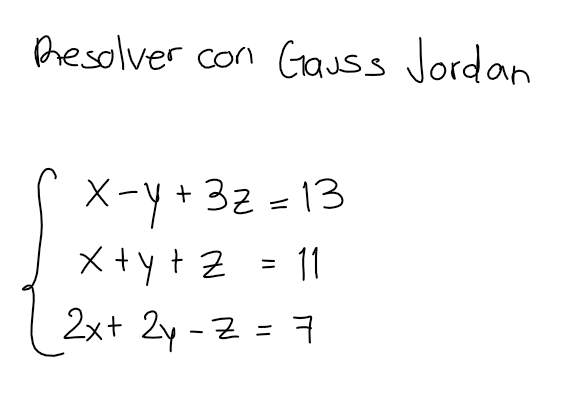 Resolver con Gauss Jordan
x - y + 3z = 13
x + y + z = 11
2x + 2y - z = 7